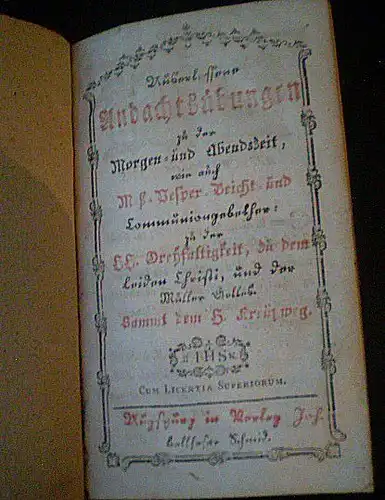 Auserlessene
Andachtsübungen
zu der
Morgen- und Abendszeit,
wie auch
Meß- Vesper- Beicht- und
Communiongebether:
zu der
HH. Dreyfaltigkeit, zu dem
Leiden Christi, und der
Mutter Gottes.
Sammt dem H. Kreuzweg.
IHS
CUM LICENTIA SUPERIORUM.
Augspurg in Verlag Joh.
Balthasar Schmid.